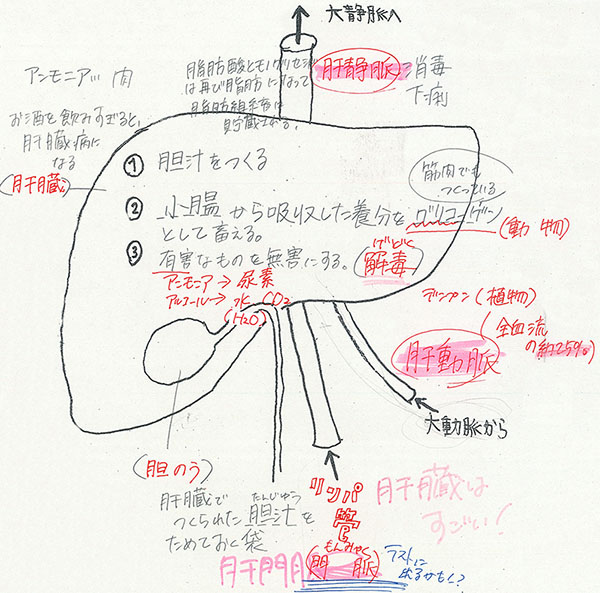 大静脈へ
アンモニア… 肉
脂肪酸ともノグリセリド
は再び脂肪になって
脂肪組織
貯蔵される。
肝静脈
消毒
下痢
お酒を飲みすぎると、
肝臓病に
なる
(肝臓)
① 胆汁をつくる
筋肉でも
つくっている
② 小腸から吸収した養分をグリコーゲン
として蓄える。
(動物)
③ 有害なものを無害にする。
げどく
(解毒)
アンモニア→尿素
アルコール→水 CO₂
(H₂O)
デンプン(植物)
全血流
の約25%
肝動脈
大動脈から
(胆のう)
肝臓で
たんじゅう
つくられた胆汁を
ためておく袋
リンパ
管
もんみゃく
肝門
(門脈)
肝臓は
すごい!
ラストに
出るかもく?